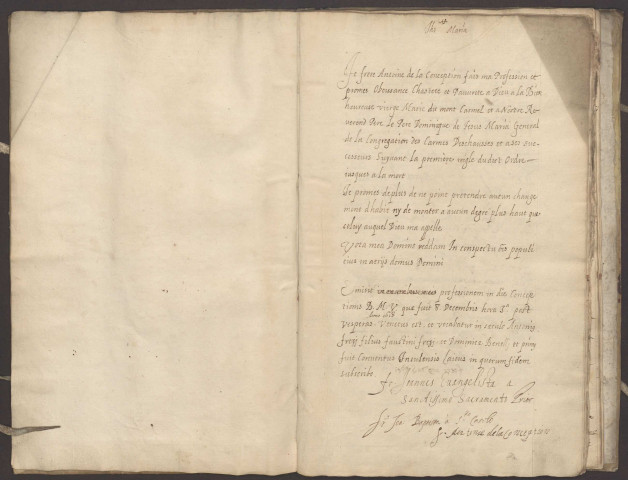 Jhs Maria
Je frere Antoine de la Conception fais ma Profession et
promes Obeissance Chastete et Pauvrete a Dieu a la Bien
heureuse vierge Marie du mont Carmel et a Nostre Re
verend Pere le Pere Dominique de Jesus Maria General
de la Congregation des Carmes Deschausses et a ses suc
cesseurs suyvant la premiere regle dudict Ordre
iusques a la mort
Je promes de plus de ne point pretendre aucun change
ment d'habit ny de monter a aucun degre plus haut que
celuy auquel Dieu ma apelle
Vota mea Domino reddam In conspectu ois populi
eius in atrijs domus Domini
Emisit professionem in die Concep
tionis B. M. V. que fuit 8 Decembris hora post
vesperas Vocatus est et vocabatur in seculo Antonius
filius faustini et Dominice
fuit Conventus Insulensis Cuius in quorum fidem
subscribo
fr Joannes Evangelista a
Sanctissimo Sacramento Prior
fr Jo Baptista a
fr Antoine de la Conception